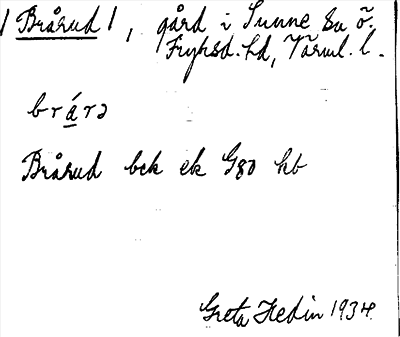 / Brårud /, gård i Sunne sn ö.
Fryksd. hd, Värml. l.
brárə
Brårud bck ek G80 hb
Greta Hedin 1934.